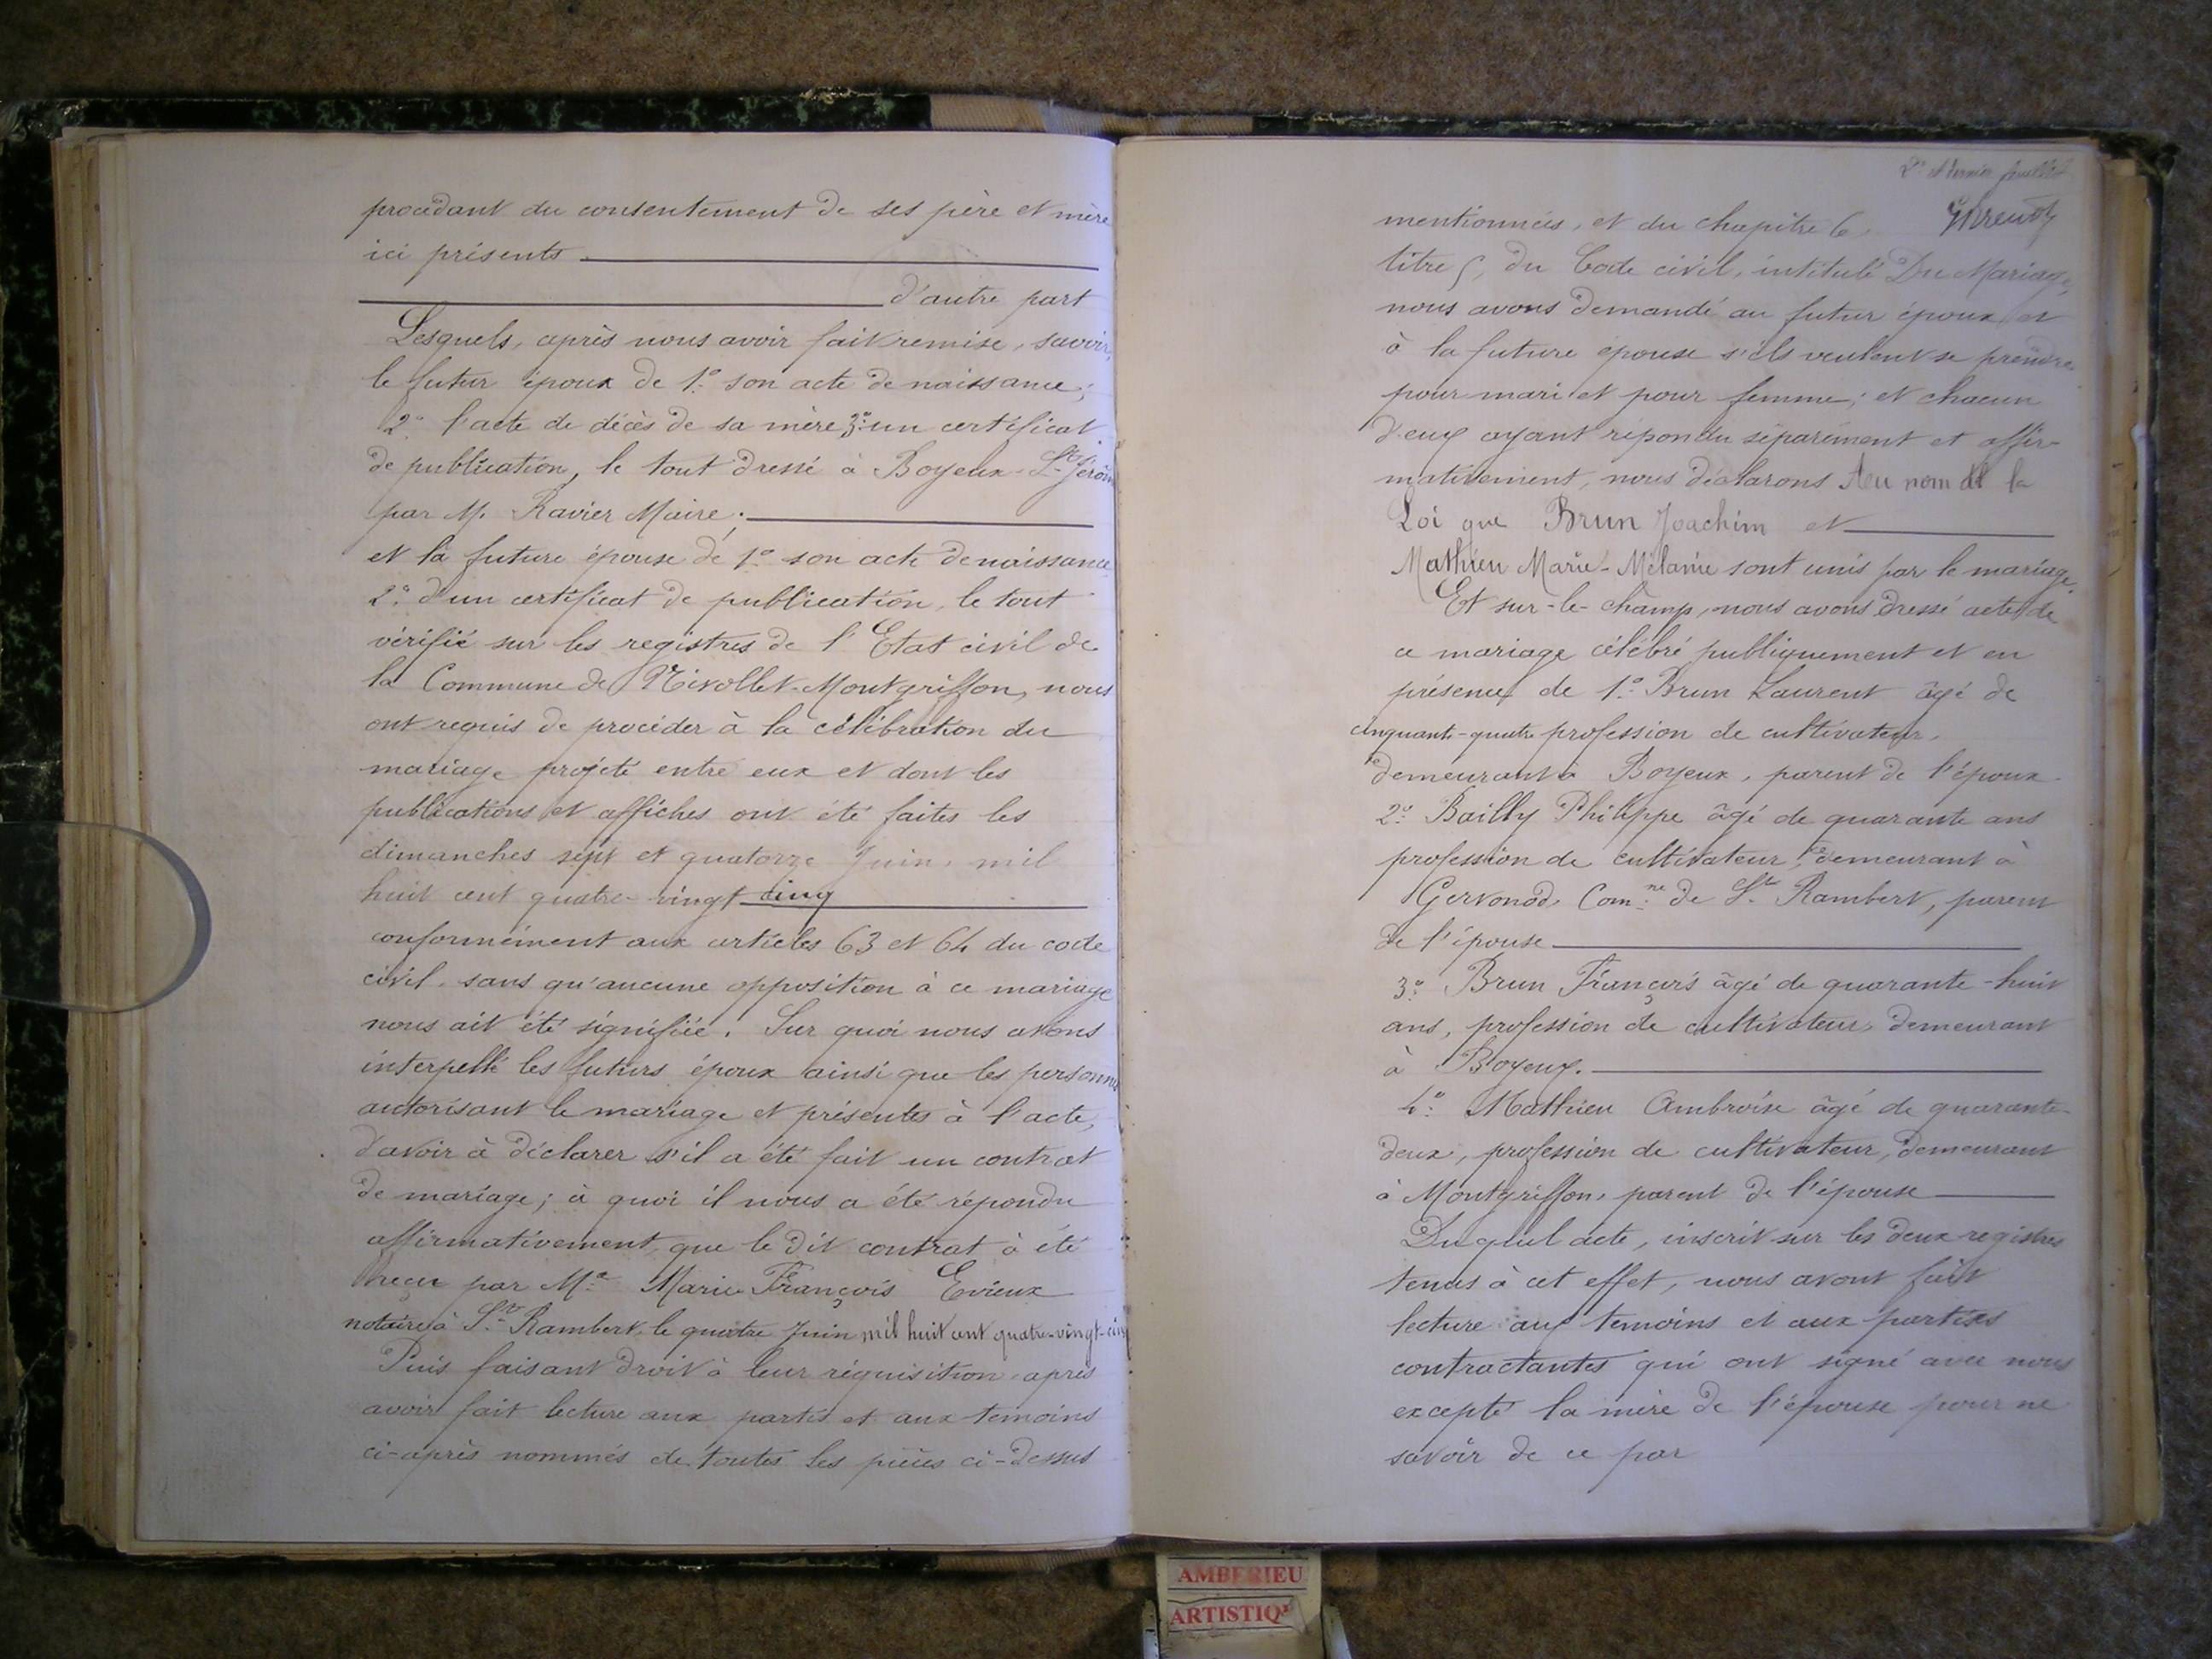 procédant du consentement de ses père et mère
ici présents
d'autre part
Lesquels, après nous avoir fait remise, savoir,
le futur époux de 1.º son acte de naissance;
2.º l'acte de décès de sa mère 3.º un certificat
de publication, le tout dressé à Boyeux-St Jérôme
par M. Ravier Maire;
et la future épouse de 1.º son acte de naissance
2.º d'un certificat de publication, le tout
vérifié sur les registres de l'Etat civil de
la Commune de Nivollet-Montgriffon, nous
ont requis de procéder à la célébration du
mariage projeté entre eux et dont les
publications et affiches ont été faites les
dimanches sept et quatorze Juin, mil
huit cent quatre-vingt cinq
conformément aux articles 63 et 64 du code
civil, sans qu'aucune opposition à ce mariage
nous ait été signifiée. Sur quoi nous avons
interpellé les futurs époux ainsi que les personnes
autorisant le mariage et présentes à l'acte,
d'avoir à déclarer s'il a été fait un contrat
de mariage; à quoi il nous a été répondu
affirmativement, que le dit contrat à été
reçu par Me Marie François Evieux
notaire à St Rambert, le quatre Juin mil huit cent quatre-vingt-cinq
Puis faisant droit à leur réquisition, après
avoir fait lecture aux partis et aux temoins
ci-après nommés de toutes les pièces ci-dessus
2e et dernier feuillet
mentionnées, et du chapitre 6,
titre 5, du Code civil, intitulé Du Mariage,
nous avons demandé au futur époux et
à la future épouse s'ils veulent se prendre
pour mari et pour femme; et chacun
d'eux ayant répondu séparément et affir-
mativement, nous déclarons Au nom de la
Loi que Brun Joachim et
Mathieu Marie-Mélanie sont unis par le mariage.
Et sur-le-champ, nous avons dressé acte de
ce mariage célébré publiquement et en
présence de 1.º Brun Laurent âgé de
cinquante-quatre profession de cultivateur,
demeurant à Boyeux, parent de l'époux.
2.º Bailly Philippe âgé de quarante ans
profession de cultivateur, demeurant à
Gervonod, Com.ne de St Rambert, parent
de l'épouse
3.º Brun François âgé de quarante-huit
ans, profession de cultivateur, demeurant
à Boyeux.
4.º Mathieu Ambroise âgé de quarante-
deux, profession de cultivateur, demeurant
à Montgriffon, parent de l'épouse
Duquel acte, inscrit sur les deux registres
tenus à cet effet, nous avont fait
lecture aux temoins et aux parties
contractantes qui ont signé avec nous
excepté la mère de l'épouse pour ne
savoir de ce par
AMBERIEU
ARTISTIQ